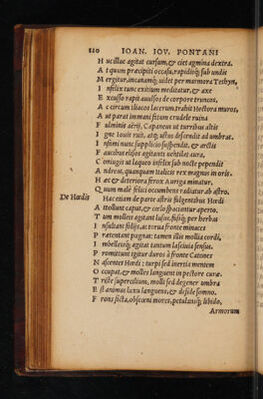 110 IOAN. IOV. PONTANI
H uc illuc agitat cursum, & ciet agmina dextra.
A t quum præcipiti occasu, rapidisq; sub undis
M ergitur, incanamq; uidet per marmora Tethyn,
I nfelix tunc exitium meditatur, & axe
E xcusso rapit auulsos de corpore truncos,
A c circum Iliacos lacerum trahit Hectora muros,
A ut parat immani fitam crudele ruina
F ulminis aërii, Capaneus ut turribus altis
I gne iouit ruit, atq; ustus descendit ad umbras.
I nfimi nunc supplicio suspendet, & arctis
F aucibus elisos agitants uentilet aura,
C oniugis ut laqueo infelix sub nocte pependit
A ndreas, quanquam Italicis rex magnus in oris.
H æc & deteriora ferox Auriga minatur,
Q uum malè felici occumbens radiatur ab astro.
De Hœdis Hac etiam de parte astris fulgentibus Hœdi
A ttollunt caput, & cœlo spectantur aperto.
T um molles agitant lusus, fusisq; per herbas
I nsultant stolis, ac torua fronte minaces
P rætentant pugnas: tamen illis mollia cordi,
I mbellesq; agitat tantum lasciuia sensus.
P romittunt igitur duros à fronte Catones
N ascentes Hœdi: turpi sed inertia mentem
O ccupat, & molles languent in pectore curæ.
T riste supercilium, molli sed degener umbra
E st animus luxu languens, & deside somno.
F rons ficta, obscœni mores, petulansq; libido,
Armorum